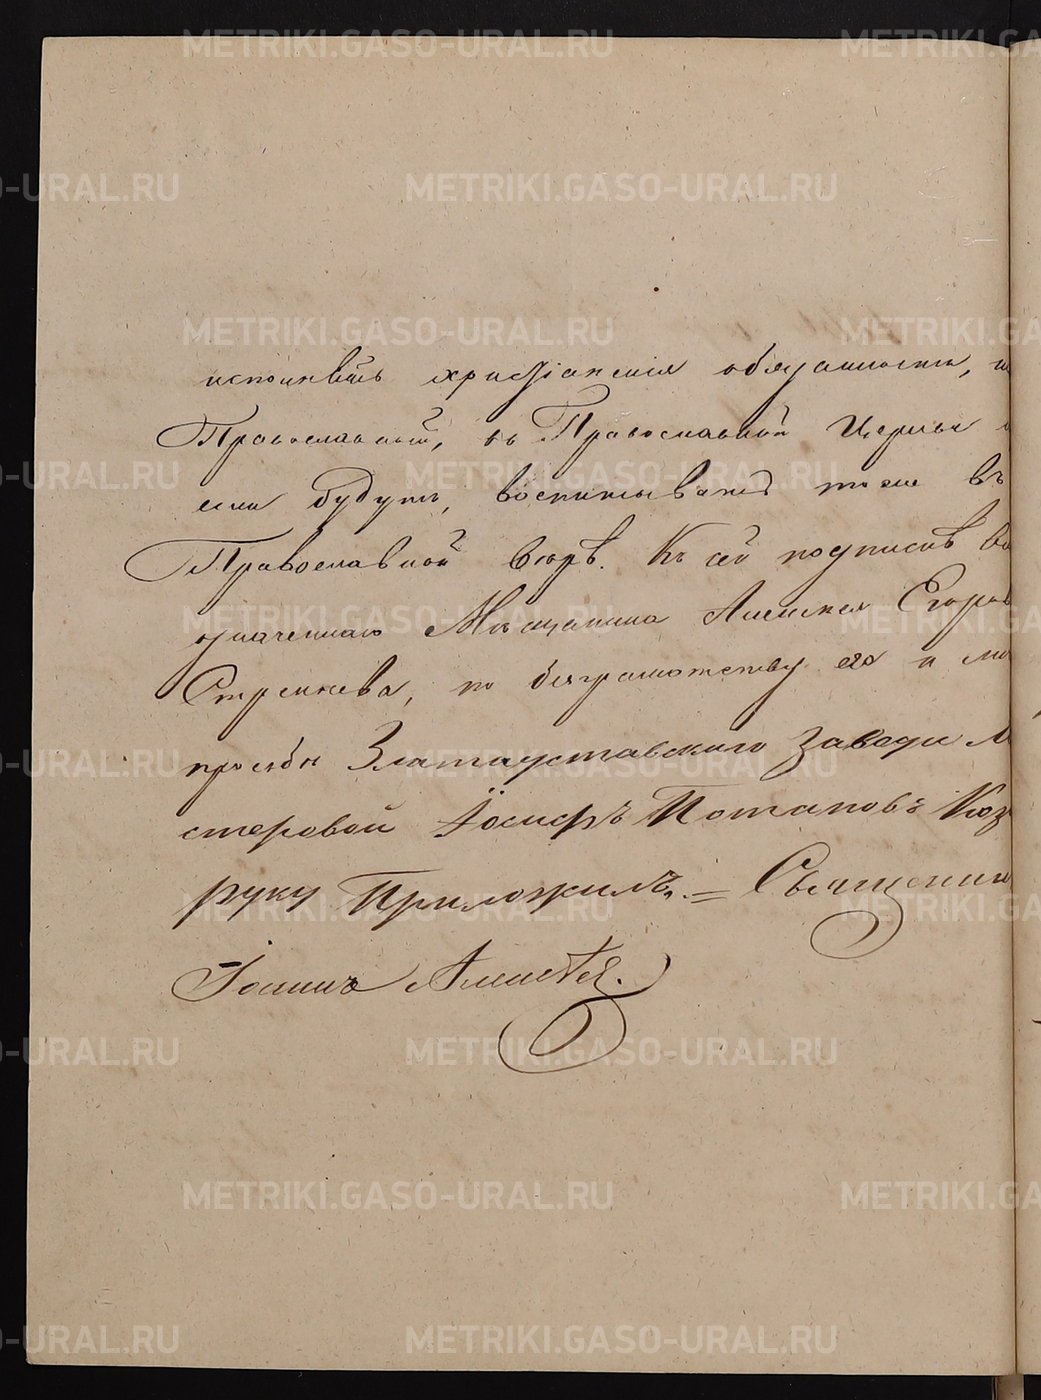 METRIKI.GASO-URAL.RU
исполнять христіанскія обязанности,
Православный, въ Православной Церкви
если будутъ, воспитывать тоже въ
Православной вѣрѣ. Къ сей подпискѣ
означеннаго Мѣщанина Алексѣя Егоров
Стрелкева, по безграмотству его и
просьбѣ Златоуставскаго завода М
стеровой Іосифъ Потаповъ Коз
руку Приложилъ. = Священни
Іоаннъ